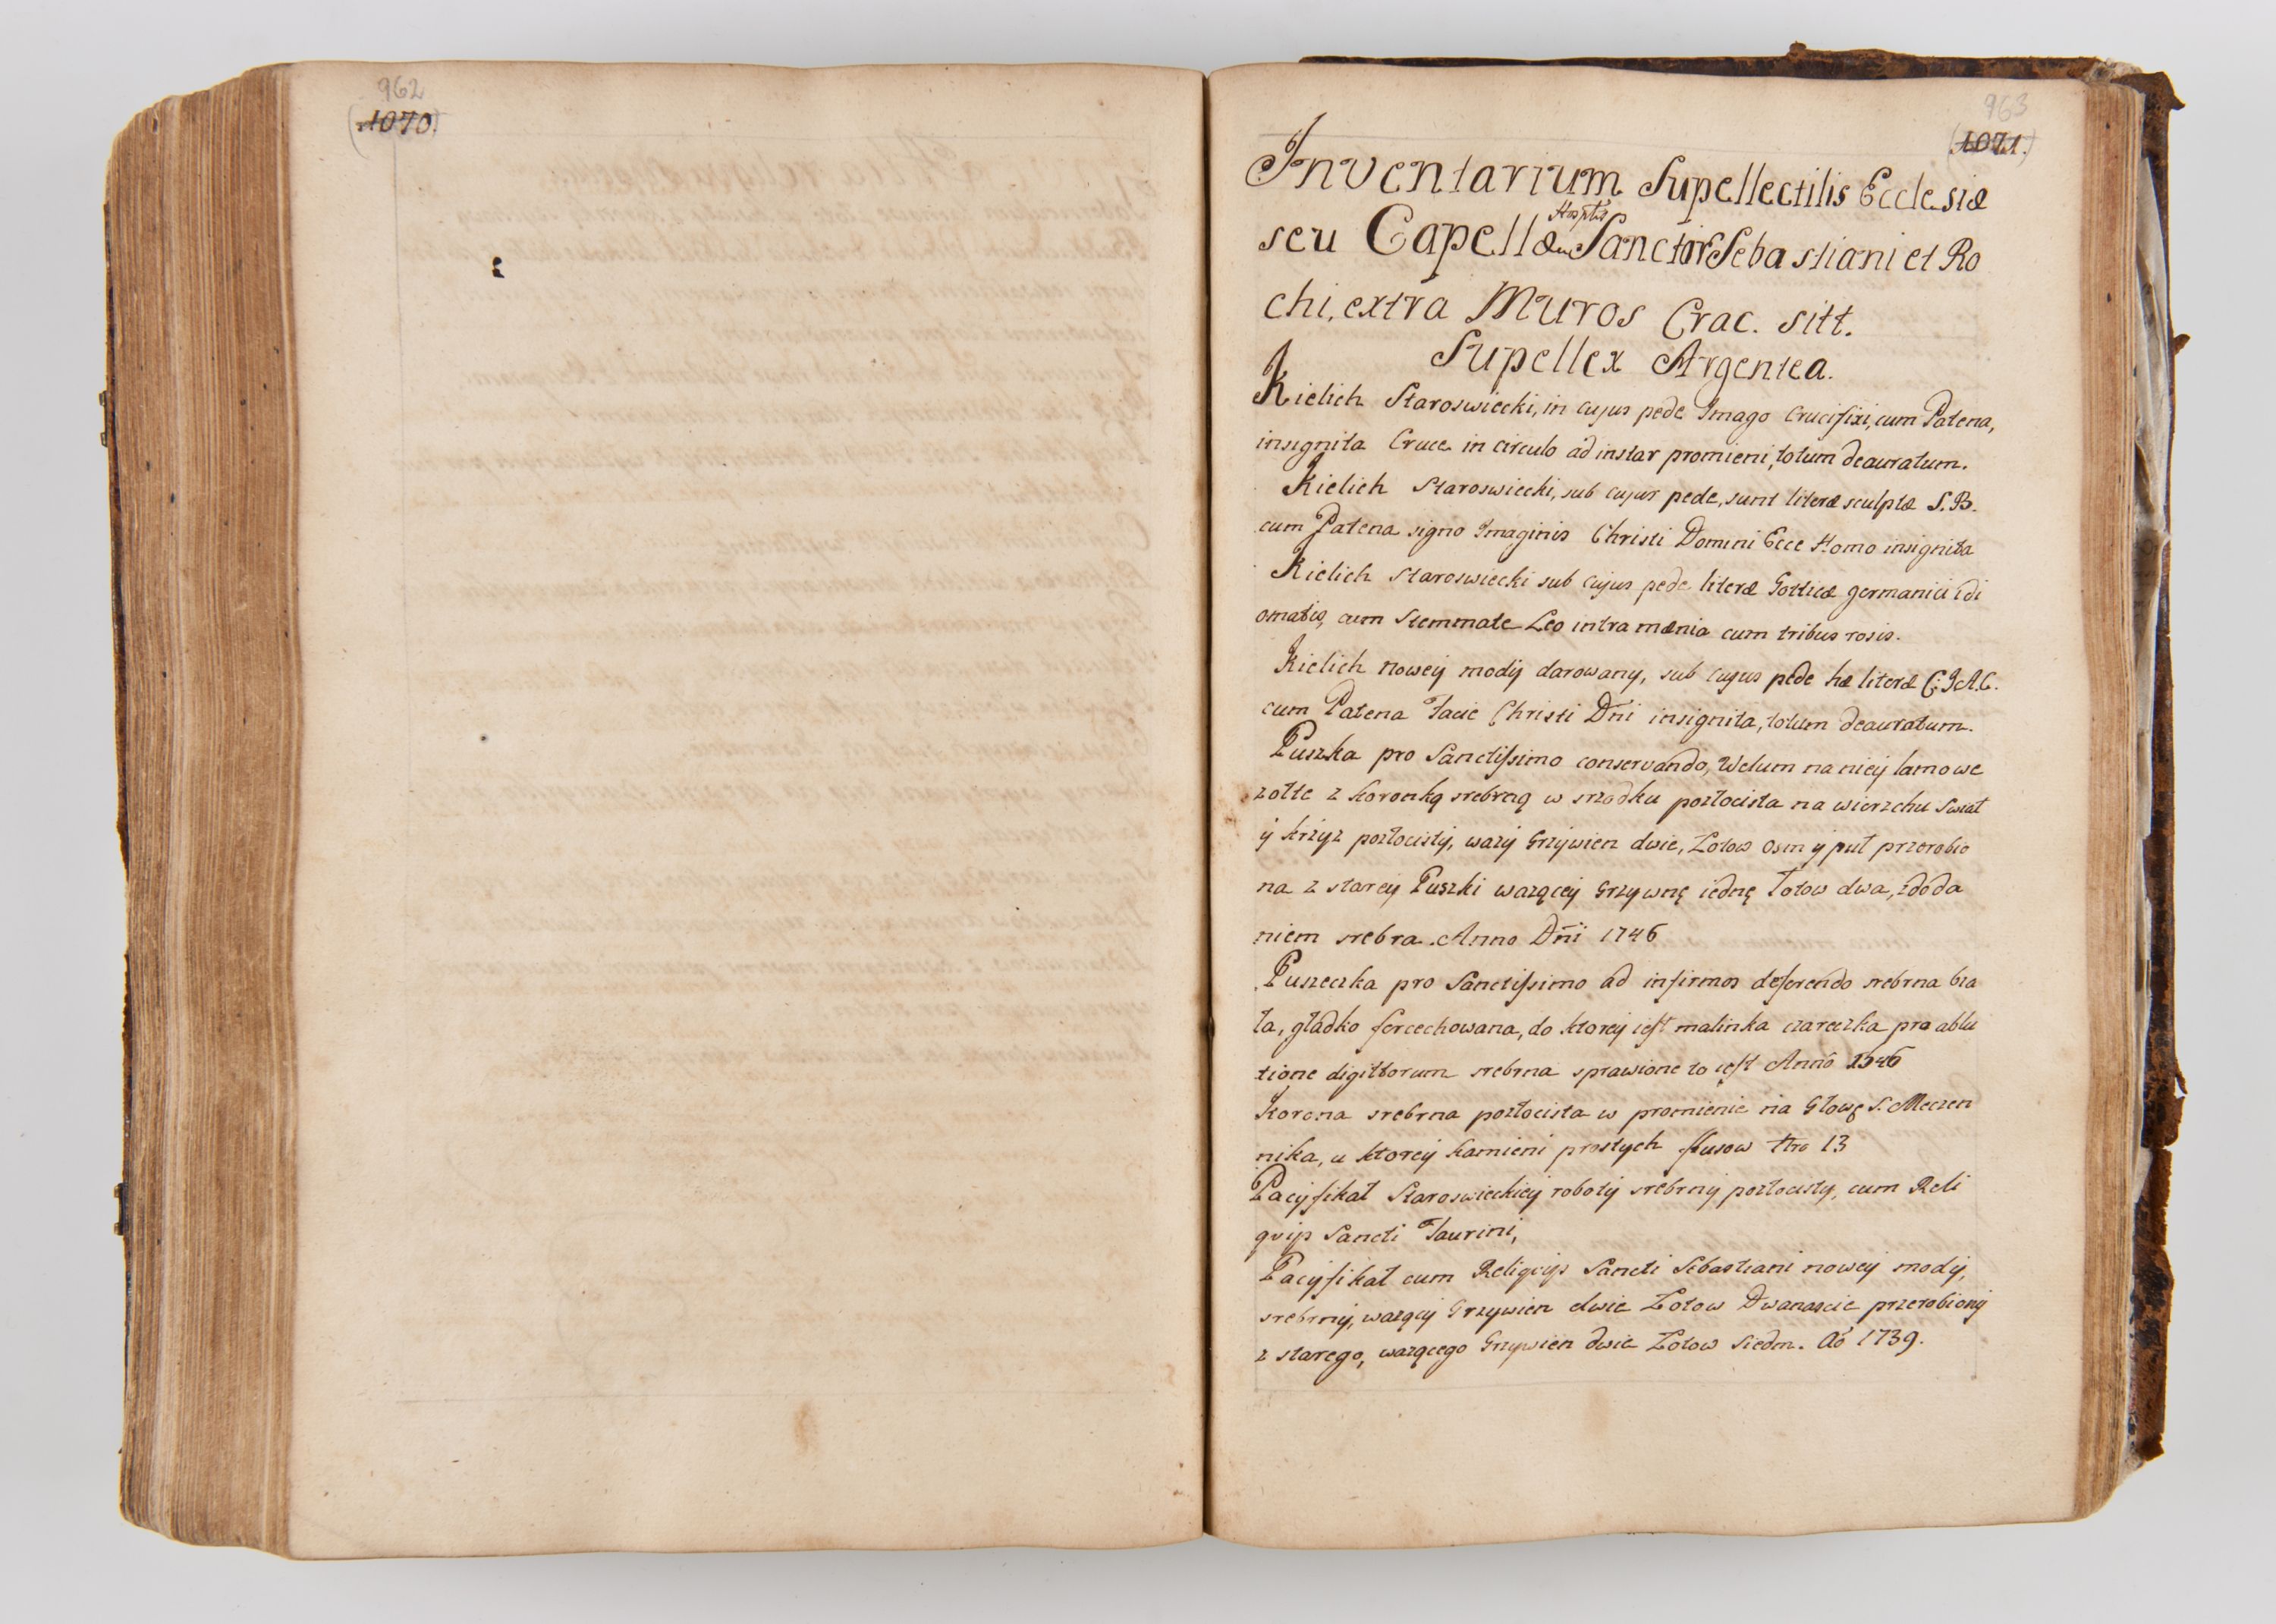 962
1070.
963
1071.
Inventarium Supellectilis Ecclesiæ
Hosplis
seu Capellæ Sanctor Sebastiani et Ro
chi, extra Muros Crac. sitt.
Supellex Argentea.
Kielich Staroswiecki, in cujus pede Imago Crucifixi, cum Patena,
insignita Cruce in circulo ad instar promieni, totum deauratum.
Kielich Staroswiecki, sub cujus pede, sunt literæ sculptæ S.B.
cum Patena signo Imaginis Christi Domini Ecce Homo insignita
Kielich Staroswiecki sub cujus pede literæ Gotticæ germanici idi
omatis, cum Stemmate Leo intra mænia cum tribus rosis.
Kielich nowey mody darowany, sub cujus pede hæ literæ C.I.A.C.
cum Patena Facie Christi Dñi insignita, totum deauratum.
Puszka pro Sanctissimo conservando, Welum na niey lamowe
zołte z koronką srebrną w srzodku pozłocista na wierzchu Swiat
y krzyz pozłocisty, wazy Grzywien dwie, Łotow osm y puł przerobio
na z starey Puszki wazącey Grzywnę iednę Łotow dwa, z doda
niem srebra Anno Dñi 1746
Puszeczka pro Sanctissimo ad infirmos deferendo srebrna bia
ła, gładko fercechowana, do ktorey iest malinka czareczka pro ablu
tione digittorum srebrna sprawione to iest Anno 1746
Korona srebrna pozłocista w promienie na Głowę S. Męczen
nika, u ktorey kamieni prostych flusow Nro 13
Pacyfikał Staroswieckiey roboty srebrny pozłocisty, cum Reli
qvijs Sancti Taurini,
Pacyfikał cum Reliqvijs Sancti Sebastiani nowey mody,
srebrny, wazący Grzywien dwie Łotow Dwanascie przerobiony
z starego, wazącego Grzywien dwie Łotow Siedm. Aō 1739.